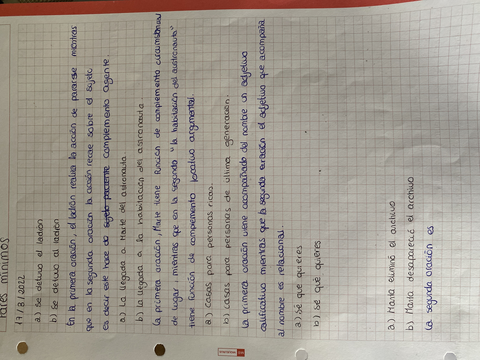 Pares mínimos
17/8/2022
a) Se detuvo el ladrón
b) Se detuvo al ladrón
En la primera oración, el ladrón realiza la acción de pararse mientras
que en la segunda oración la acción recae sobre el sujeto
es decir este hace de sujeto paciente complemento agente.
a) La llegada a Marte del astronauta
b) La llegada a la habitación del astronauta
La primera oración, Marte tiene función de complemento circunstancial
de lugar mientras que en la segunda "la habitación del astronauta"
tiene función de complemento locativo argumental.
a) Casas para personas ricas.
b) Casas para personas de última generación.
La primera oración viene acompañado del nombre un adjetivo
calificativo mientras que la segunda oración el adjetivo que acompaña
al nombre es relacional.
a) Sé que quieres
b) Sé qué quieres
a) Marta eliminó el archivo
b) Marta desapareció el archivo
La segunda oración es